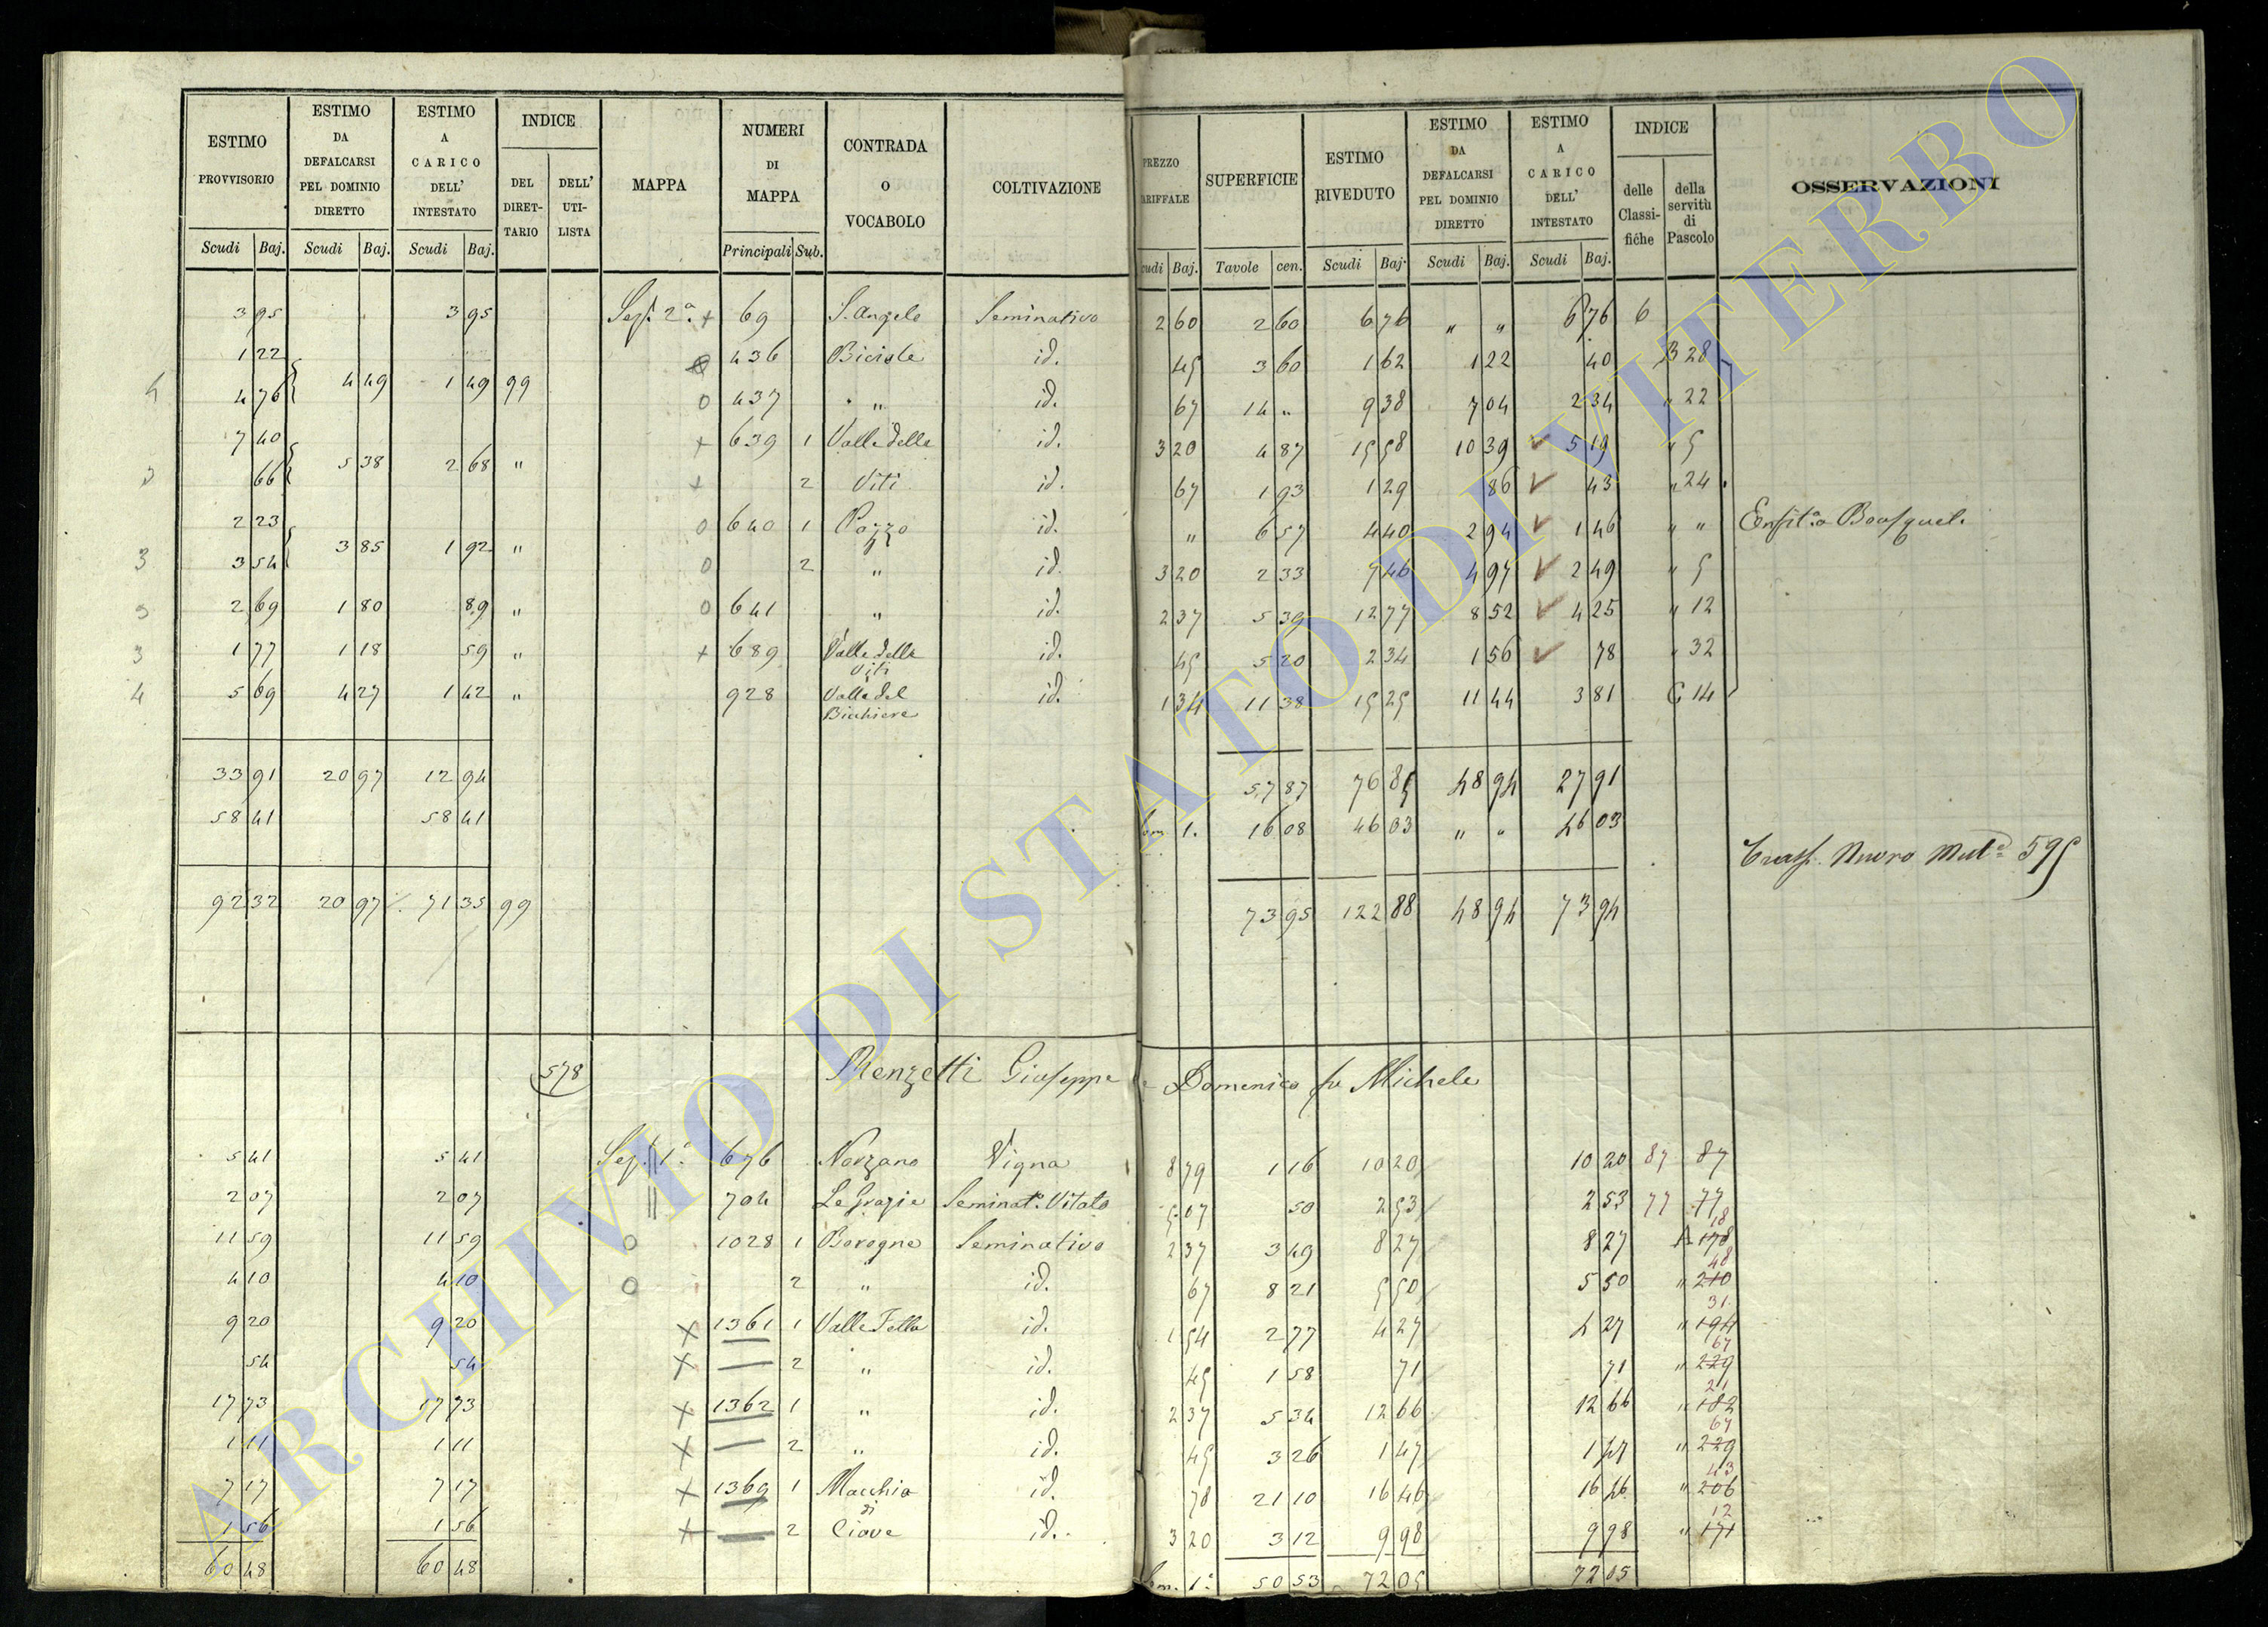 ESTIMO PROVVISORIO | ESTIMO DA DEFALCARSI PEL DOMINIO DIRETTO | ESTIMO A CARICO DELL' INTESTATO | INDICE | MAPPA | NUMERI DI MAPPA | CONTRADA O VOCABOLO | COLTIVAZIONE | PREZZO ARIFFALE | SUPERFICIE | ESTIMO RIVEDUTO | ESTIMO DA DEFALCARSI PEL DOMINIO DIRETTO | ESTIMO A CARICO DELL' INTESTATO | INDICE | OSSERVAZIONI
DEL DIRET-TARIO | DELL' UTI-LISTA | delle Classi-fiche | della servitù di Pascolo
Scudi Baj. | Scudi Baj. | Scudi Baj. | Principali Sub. | cudi Baj. | Tavole cen. | Scudi Baj. | Scudi Baj. | Scudi Baj.
3 95 | 3 95 | Sez. 2a + 69 | S. Angelo | Seminativo | 2 60 | 2 60 | 6 76 | " " | 6 76 | 6
1 22 | 436 | id. | 45 | 3 60 | 1 62 | 1 22 | 40 | B 28
4 | 4 76 | 4 49 | 1 49 | 99 | 0 437 | " | id. | 67 | 14 " | 9 38 | 7 04 | 2 34 | " 22
7 40 | + 639 1 | Valle della | id. | 3 20 | 4 87 | 15 58 | 10 39 | 5 19 | " 5
66 | 5 38 | 2 68 | " | + 2 | Viti | id. | 67 | 1 93 | 1 29 | 86 | 43 | " 24
2 23 | 0 640 1 | Pozzo | id. | " | 6 57 | 4 40 | 2 94 | 1 46 | " "
3 | 3 54 | 3 85 | 1 92 | " | 0 2 | " | id. | 3 20 | 2 33 | 7 46 | 4 97 | 2 49 | " 5
3 | 2 69 | 1 80 | 89 | " | 0 641 | " | id. | 2 37 | 5 39 | 12 77 | 8 52 | 4 25 | " 12
3 | 1 77 | 1 18 | 59 | " | + 689 | Valle della Viti | id. | 45 | 5 20 | 2 34 | 1 56 | 78 | " 32
4 | 5 69 | 4 27 | 1 42 | " | 928 | Valle del Bichiere | id. | 1 34 | 11 38 | 15 25 | 11 44 | 3 81 | C 14
33 91 | 20 97 | 12 94 | 57 87 | 76 85 | 48 94 | 27 91
58 41 | 58 41 | 1. | 16 08 | 46 03 | " " | 46 03
Nuovo 595
92 32 | 20 97 | 71 35 | 99 | 73 95 | 122 88 | 48 94 | 73 94
578 | Menzetti Giuseppe e Domenico fu Michele
5 41 | 5 41 | Sez. 1a | 676 | Norzano | Vigna | 8 79 | 1 16 | 10 20 | 10 20 | 87 | 87
2 07 | 2 07 | " | 704 | Le Grazie | Seminat. Vitato | 5 07 | 50 | 2 53 | 2 53 | 77 | 77
11 59 | 11 59 | 0 | 1028 1 | Borogna | Seminativo | 2 37 | 3 49 | 8 27 | 8 27 | A 178 18
4 10 | 4 10 | 0 | 2 | " | id. | 67 | 8 21 | 5 50 | 5 50 | " 210 48
9 20 | 9 20 | x | 1361 1 | Valle Fetta | id. | 1 54 | 2 77 | 4 27 | 4 27 | " 194 31
54 | 54 | x | 2 | " | id. | 45 | 1 58 | 71 | 71 | " 229 67
17 73 | 17 73 | x | 1362 1 | " | id. | 2 37 | 5 34 | 12 66 | 12 66 | " 182 21
1 11 | 1 11 | x | 2 | " | id. | 45 | 3 26 | 1 47 | 1 47 | " 229 67
7 17 | 7 17 | x | 1369 1 | Macchia di | id. | 78 | 21 10 | 16 46 | 16 46 | " 206 43
1 56 | 1 56 | x | 2 | Ciove | id. | 3 20 | 3 12 | 9 98 | 9 98 | " 171 12
60 48 | 60 48 | 1a | 50 53 | 72 05 | 72 05
ARCHIVIO DI STATO DI VITERBO